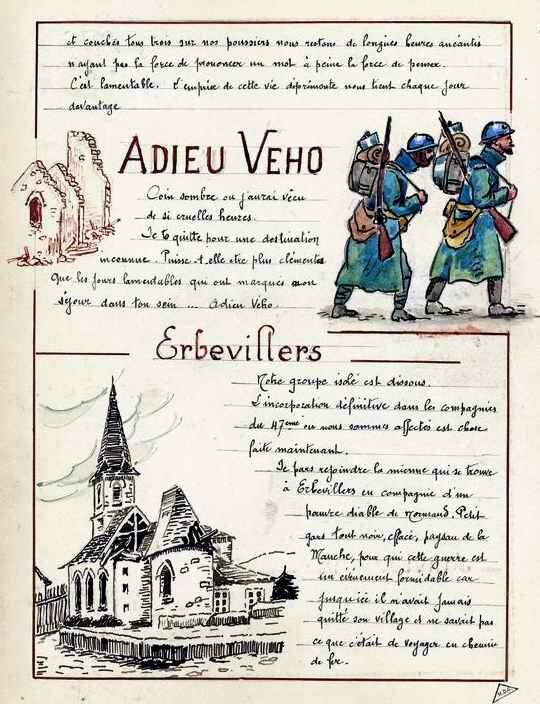 et couchés tous trois sur nos poussiers nous restons de longues heures anéantis
n'ayant pas la force de prononcer un mot à peine la force de penser.
C'est lamentable. L'emprise de cette vie déprimante nous tient chaque jour
davantage
ADIEU VEHO
Coin sombre ou j'aurai vécu
de si cruelles heures.
Je te quitte pour une destination
inconnue. Puisse-t-elle etre plus clémente
Que les jours lamentables qui ont marqués mon
séjour dans ton sein ... Adieu Veho.
Erbevillers
Notre groupe isolé est dissous.
L'incorporation définitive dans les compagnies
du 47eme ou nous sommes affectés est chose
faite maintenant.
Je pars rejoindre la mienne qui se trouve
à Erbevillers en compagnie d'un
pauvre diable de Normand. Petit
gars tout noir, effacé, paysan de la
Manche, pour qui cette guerre est
un évènement formidable car
jusqu'ici il n'avait jamais
quitté son village et ne savait pas
ce que c'était de voyager en chemin
de fer.